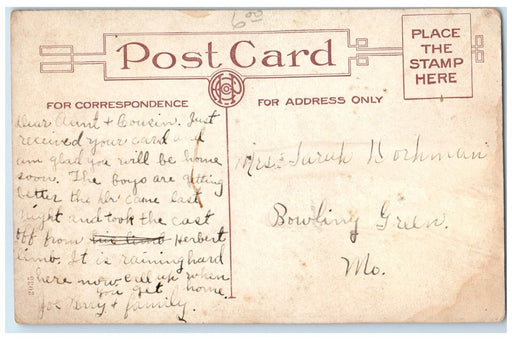 6.00
Post Card
PLACE
THE
STAMP
HERE
FOR CORRESPONDENCE
FOR ADDRESS ONLY
Dear Aunt + Cousin. Just
received your card and
am glad you will be home
soon. The boys are getting
better the Dr came last
night and took the cast
off from his limb Herbert
limb. It is raining hard
here now call up when
you get home.
Joe Terry + family.
Mrs. Sarah Workman
Bowling Green.
Mo.
2035